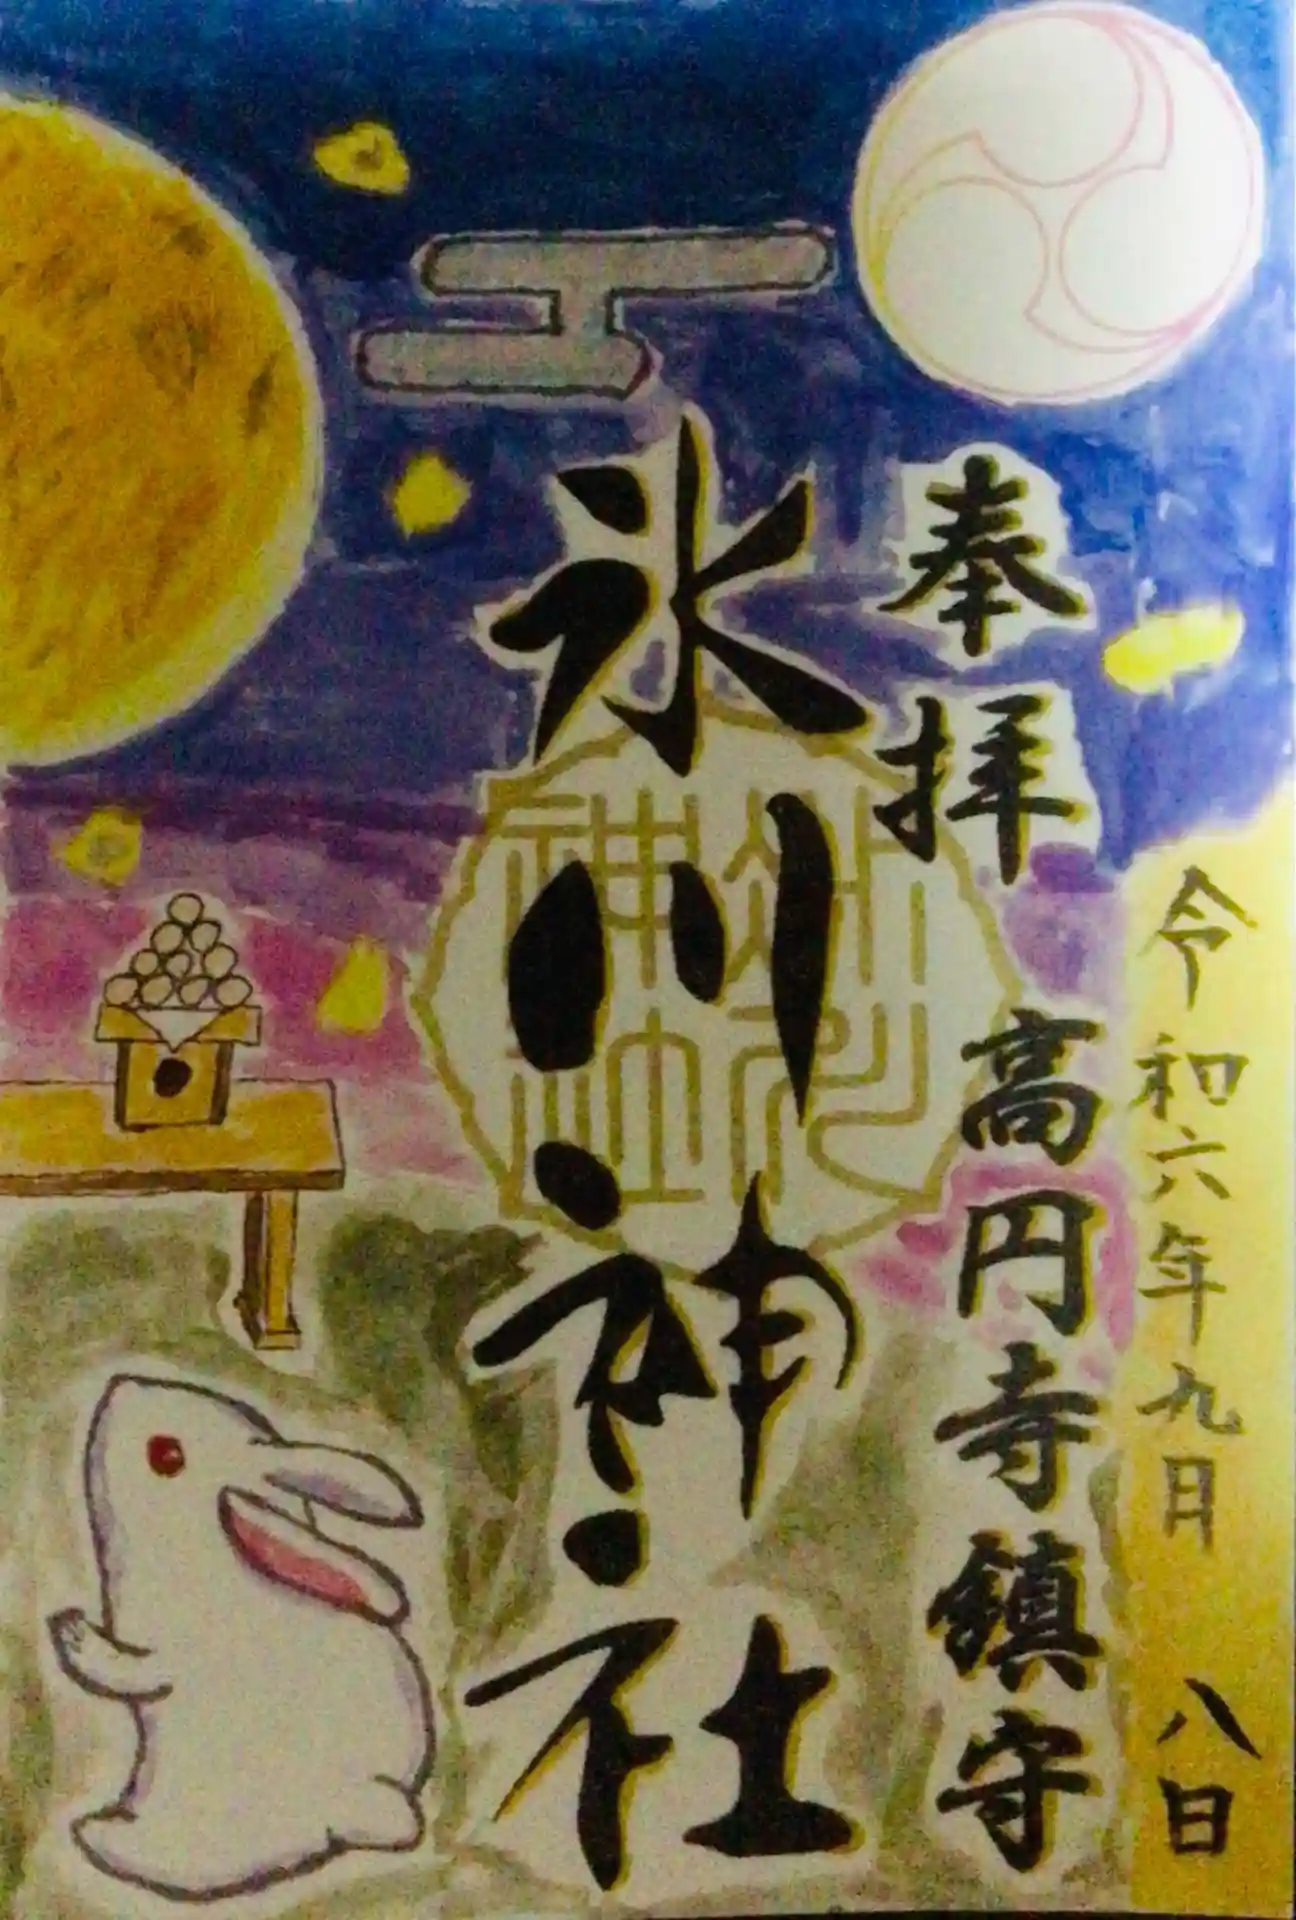 令和六年九月八日
奉拝
高円寺鎮守
氷川神社
氷川神社之印